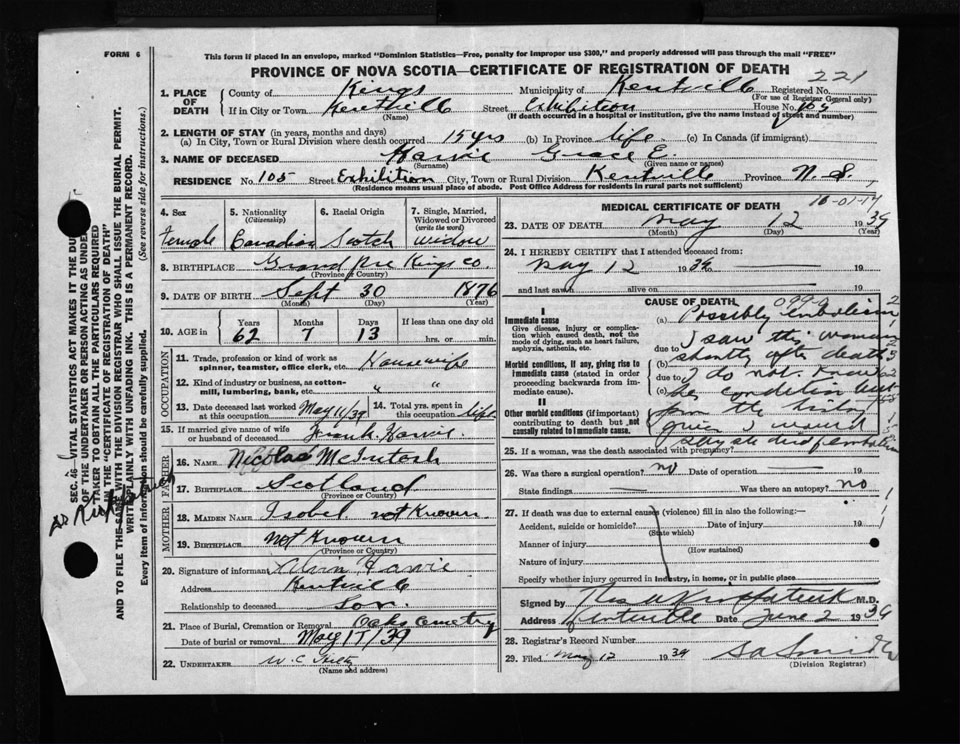 FORM 6
This form if placed in an envelope, marked "Dominion Statistics—Free, penalty for improper use $300," and properly addressed will pass through the mail "FREE"
PROVINCE OF NOVA SCOTIA—CERTIFICATE OF REGISTRATION OF DEATH
221
1. PLACE OF DEATH
County of Kings Municipality of Kentville Registered No.
(For use of Registrar General only)
If in City or Town Kentville Street Exhibition House No. 105
(Name) (If death occurred in a hospital or institution, give the name instead of street and number)
2. LENGTH OF STAY (in years, months and days)
(a) In City, Town or Rural Division where death occurred 15 yrs (b) In Province life (c) In Canada (if immigrant)
3. NAME OF DECEASED Harvie Grace E.
(Surname) (Given name or names)
RESIDENCE No. 105 Street Exhibition City, Town or Rural Division Kentville Province N.S.
(Residence means usual place of abode. Post Office Address for residents in rural parts not sufficient)
4. Sex
Female
5. Nationality (Citizenship)
Canadian
6. Racial Origin
Scotch
7. Single, Married, Widowed or Divorced (write the word)
Widow
8. BIRTHPLACE Grand Pre Kings Co.
(Province or Country)
9. DATE OF BIRTH Sept 30 1876
(Month) (Day) (Year)
10. AGE in
Years Months Days If less than one day old
62 7 13 hrs. or min.
OCCUPATION
11. Trade, profession or kind of work as spinner, teamster, office clerk, etc. Housewife
12. Kind of industry or business, as cotton-mill, lumbering, bank, etc. " "
13. Date deceased last worked at this occupation May 11/39
14. Total yrs. spent in this occupation
15. If married give name of wife or husband of deceased Frank Harvie
FATHER
16. NAME Nicolas McIntosh
17. BIRTHPLACE Scotland
(Province or Country)
MOTHER
18. MAIDEN NAME Isobel not Known
19. BIRTHPLACE not Known
(Province or Country)
20. Signature of informant Harvie
Address Kentville
Relationship to deceased Son.
21. Place of Burial, Cremation or Removal Oaks Cemetry
Date of burial or removal May 17/39
22. UNDERTAKER W.C.
(Name and address)
MEDICAL CERTIFICATE OF DEATH
23. DATE OF DEATH May 12 1939
(Month) (Day) (Year)
24. I HEREBY CERTIFY that I attended deceased from:
May 12 1939 — 19
and last saw alive on — 19
CAUSE OF DEATH
I
Immediate cause
Give disease, injury or complication which caused death, not the mode of dying, such as heart failure, asphyxia, asthenia, etc.
Morbid conditions, if any, giving rise to immediate cause (stated in order proceeding backwards from immediate cause).
II
Other morbid conditions (if important) contributing to death but not causally related to immediate cause.
(a) Possibly embolism
due to I saw this woman
shortly after death
(b)
due to I do not know
(c) her condition but
from the history
given I would
say she died of embolism
25. If a woman, was the death associated with pregnancy?
26. Was there a surgical operation? no Date of operation —
State findings — Was there an autopsy? no
27. If death was due to external causes (violence) fill in also the following:—
Accident, suicide or homicide? Date of injury 19
(State which)
Manner of injury
(How sustained)
Nature of injury
Specify whether injury occurred in industry, in home, or in public place
Signed by M.D.
Address Kentville Date June 2 1939
28. Registrar's Record Number
29. Filed May 12 1939
(Division Registrar)
SEC. 46 VITAL STATISTICS ACT MAKES IT THE DUTY
OF THE UNDERTAKER OR PERSON ACTING AS UNDERTAKER TO OBTAIN ALL THE PARTICULARS REQUIRED
IN THE "CERTIFICATE OF REGISTRATION OF DEATH"
AND TO FILE THE SAME WITH THE DIVISION REGISTRAR WHO SHALL ISSUE THE BURIAL PERMIT.
WRITE PLAINLY WITH UNFADING INK. THIS IS A PERMANENT RECORD.
Every item of information should be carefully supplied.
(See reverse side for instructions.)